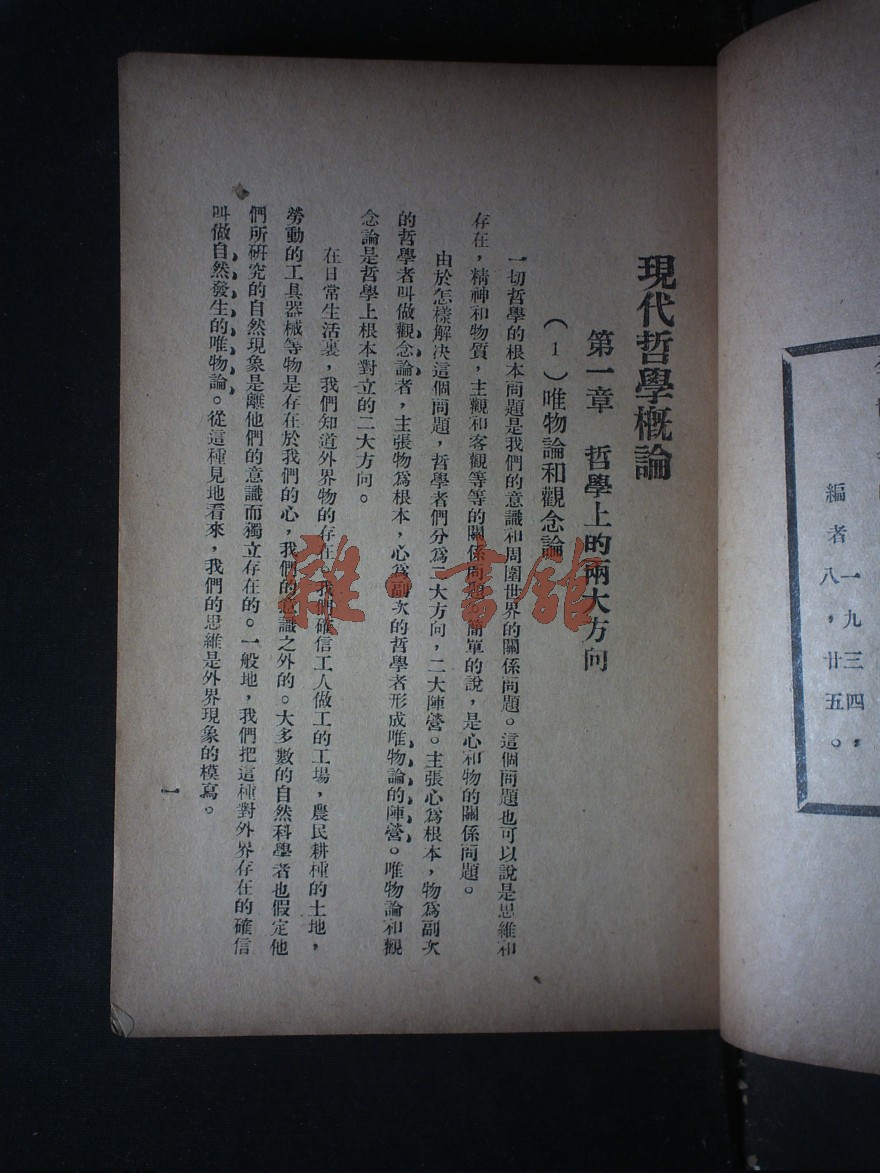 編者 一九三四，
八，廿五。
現代哲學概論
第一章　哲學上的兩大方向
（1）唯物論和觀念論
一切哲學的根本問題是我們的意識和周圍世界的關係問題。這個問題也可以說是思維和
存在，精神和物質，主觀和客觀等等的關係問題，簡單的說，是心和物的關係問題。
由於怎樣解決這個問題，哲學者們分爲二大方向，二大陣營。主張心爲根本，物爲副次
的哲學者叫做觀念論者，主張物爲根本，心爲副次的哲學者形成唯物論的陣營。唯物論和觀
念論是哲學上根本對立的二大方向。
在日常生活裏，我們知道外界物的存在。我們確信工人做工的工場，農民耕種的土地，
勞動的工具器械等物是存在於我們的心，我們的意識之外的。大多數的自然科學者也假定他
們所研究的自然現象是離他們的意識而獨立存在的。一般地，我們把這種對外界存在的確信
叫做自然發生的唯物論。從這種見地看來，我們的思維是外界現象的模寫。
一
雜·書館